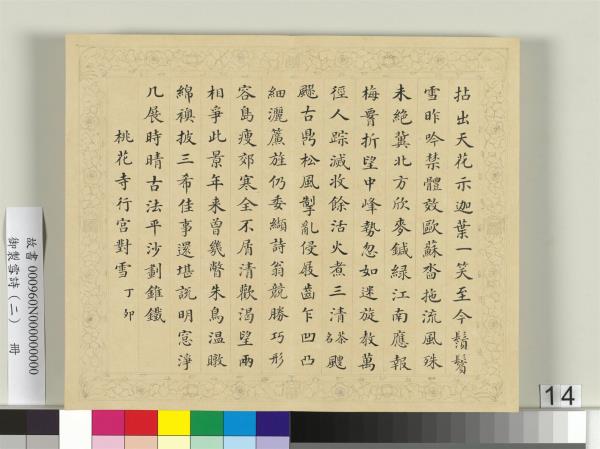 拈出天花示迦葉一笑至今鬚鬢
雪昨吟禁體效歐蘇沓拖流風殊
未絶冀北方欣麥鍼緑江南應報
梅夢折望中峰勢忽如迷旋教萬
徑人踪滅收餘活火煮三清茶名颼
颼古鼎松風掣亂侵屐齒乍凹凸
細灑簾旌仍委纈詩翁競勝巧形
容島瘦郊寒全不屑清歡渴望兩
相爭此景年来曾幾瞥朱鳥温暾
綿襖披三希佳事還堪説明窓淨
几展時晴古法平沙劃錐鐵
桃花寺行宫對雪丁卯
故書 000960N000000000
御製雪詩（二） 冊
14